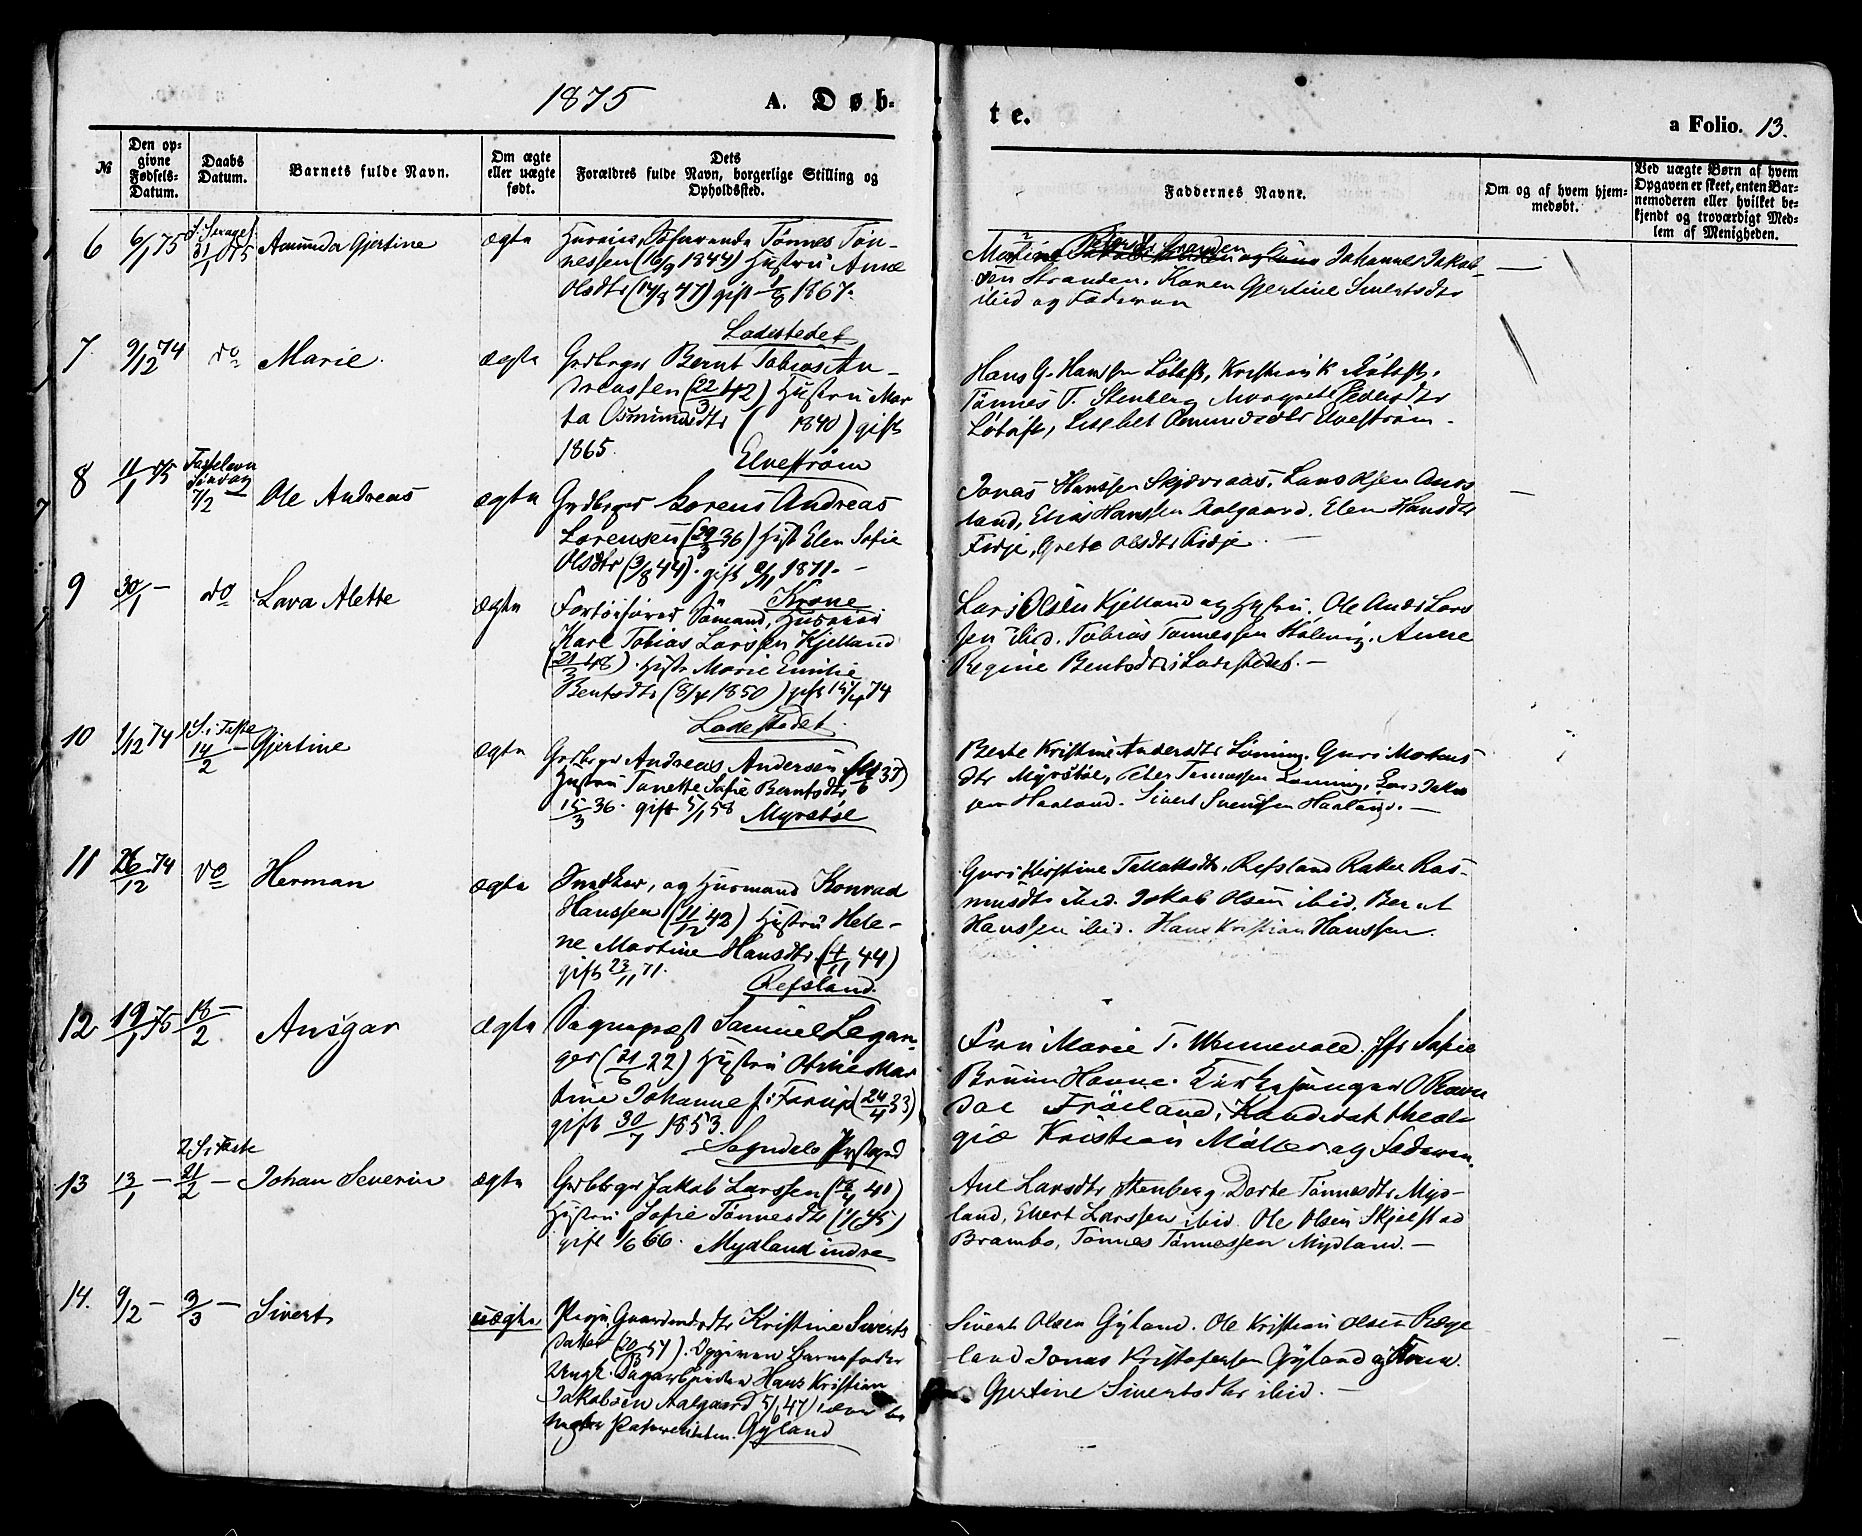 1875 A. Døb-
te.
a Folio. 13.
№
Den op-
givne
Fødsels-
Datum.
Daabs
Datum.
Barnets fulde Navn.
Om ægte
eller uægte
født.
Dets
Forældres fulde Navn, borgerlige Stilling og
Opholdssted.
Faddernes Navne.
Om og af hvem hjem-
medøbt.
Ved uægte Børn af hvem
Opgaven er skeet, enten Bar-
nemoderen eller hvilket be-
kjendt og troværdigt Med-
lem af Menigheden.
6 6/1 75 31/1 75 Amunda Gjertine ægte Tønnes Tøn-
nessen (16/9 1844) Hustru Anne
Olsdtr (14/3 47) gift 1867.
Ladestedet
Johannes Jakob-
sen Stranden. Karen Gjertine Sivertsdtr
ibid og Faderen
7. 9/12 74 do Marie. ægte Grdbrger Bernt Tobias An-
dreassen (22/3 42) Hustru Mar
ta Osmundsdtr ( 1840) gift
1865. Elvestrøm
Hans G. Hanssen Løtoft, Kristian K. Løtoft.
Tønnes T. Stenberg Margrete Pedersdtr
Løtoft, Lisebet Osmundsdtr Elvestrøm.
8 11/1 75 Fastelavn
Søndag
7/2 Ole Andreas ægte Grdbrger Lorens Andreas
Lorensen (29/3 36) Hust Elen Sofie
Olsdtr (3/8 44). gift 1871.
Krone
Jonas Hanssen Skjævraas, Lars
land, Elias Hanssen Aalgaard. Elen Hansdtr
Fidje, Grete Olsdtr Fidje.
9 30/1 – do Lava Alette ægte Fartöifører Sömand,
Karl Tobias Larssen Kjelland
48). Hustr Marie Emilie
Bentsdtr (8/4 1850) gift 15/4 74
Ladestedet.
Lars Olsen Kjelland og Hustru. Ole Andr Lars
sen ibid. Tobias Tønnessen. Anne
Regine Bentsdtr Ladestedet. –
10 1/12 74 1 S. i Faste
14/2 – Gjertine ægte Grdbrger Andreas Andersen
Hustru Tonette Sofie Berntsdtr
15/3 36. gift 5/1 58 Myrstøl
Berte Kristine Andersdtr Lønning. Guri Mortens
dtr Myrstøl, Peter Lønning, Lars Jakob
sen Haaland. Sivert Svendsen Haaland. –
11 26/12 74 do Herman ægte Snedker, og Husmand Konrad
Hanssen (11/12 42) Hustru Hele-
ne Martine Hansdtr (4/11 44)
gift 23/11 71. Refsland.
Guri Kirstine Tallaksdtr, Refsland Ras-
musdtr ibid. Jakob Olsen ibid. Bernt
Hanssen ibid. Hans Kristian Hanssen.
12 19/1 75 18/2 – Ansgar ægte Sognepræst Samuel Legan-
ger (21/6 22) Hustru Otilie Mar
tine Johanne f. (24/4 33)
gift 30/7 1853.
Sogndals Prstegrd
Fru Marie T. Wennevold. Sofie
Bruun Hanne. Kirkesanger O Raun
dal Frøiland, Kandidat theolo
giæ Kristian Møller og Faderen.
13 13/1 – 2 S i Faste
21/2 – Johan Severin ægte Grdbrger Jakob Larssen (16/4 40)
Hustru Sofie Tønnesdtr (1/6 45)
gift 1/6 66. Mydland indre
Ane Larsdtr Stenberg, Dorte Tönnesdtr Myd-
land, Elert Larssen ibid. Ole Olsen Skjelstad
Brambo, Tønnes Tønnessen Mydland. –
14. 9/2 – 3/3 – Sivert uægte Pige Kristine Siverts
datter (20/3 54). Opgiven Barnefader
Ungk. Dagarbeider Hans Kristian
Jakobsen Aalgaard 47)
Paterniteten. Gyland
Sivert Olsen Gyland. Ole Kristian Olsen Rege
land Jonas Kristofersen Gyland og
Gjertine Sivertsdtr ibid. –